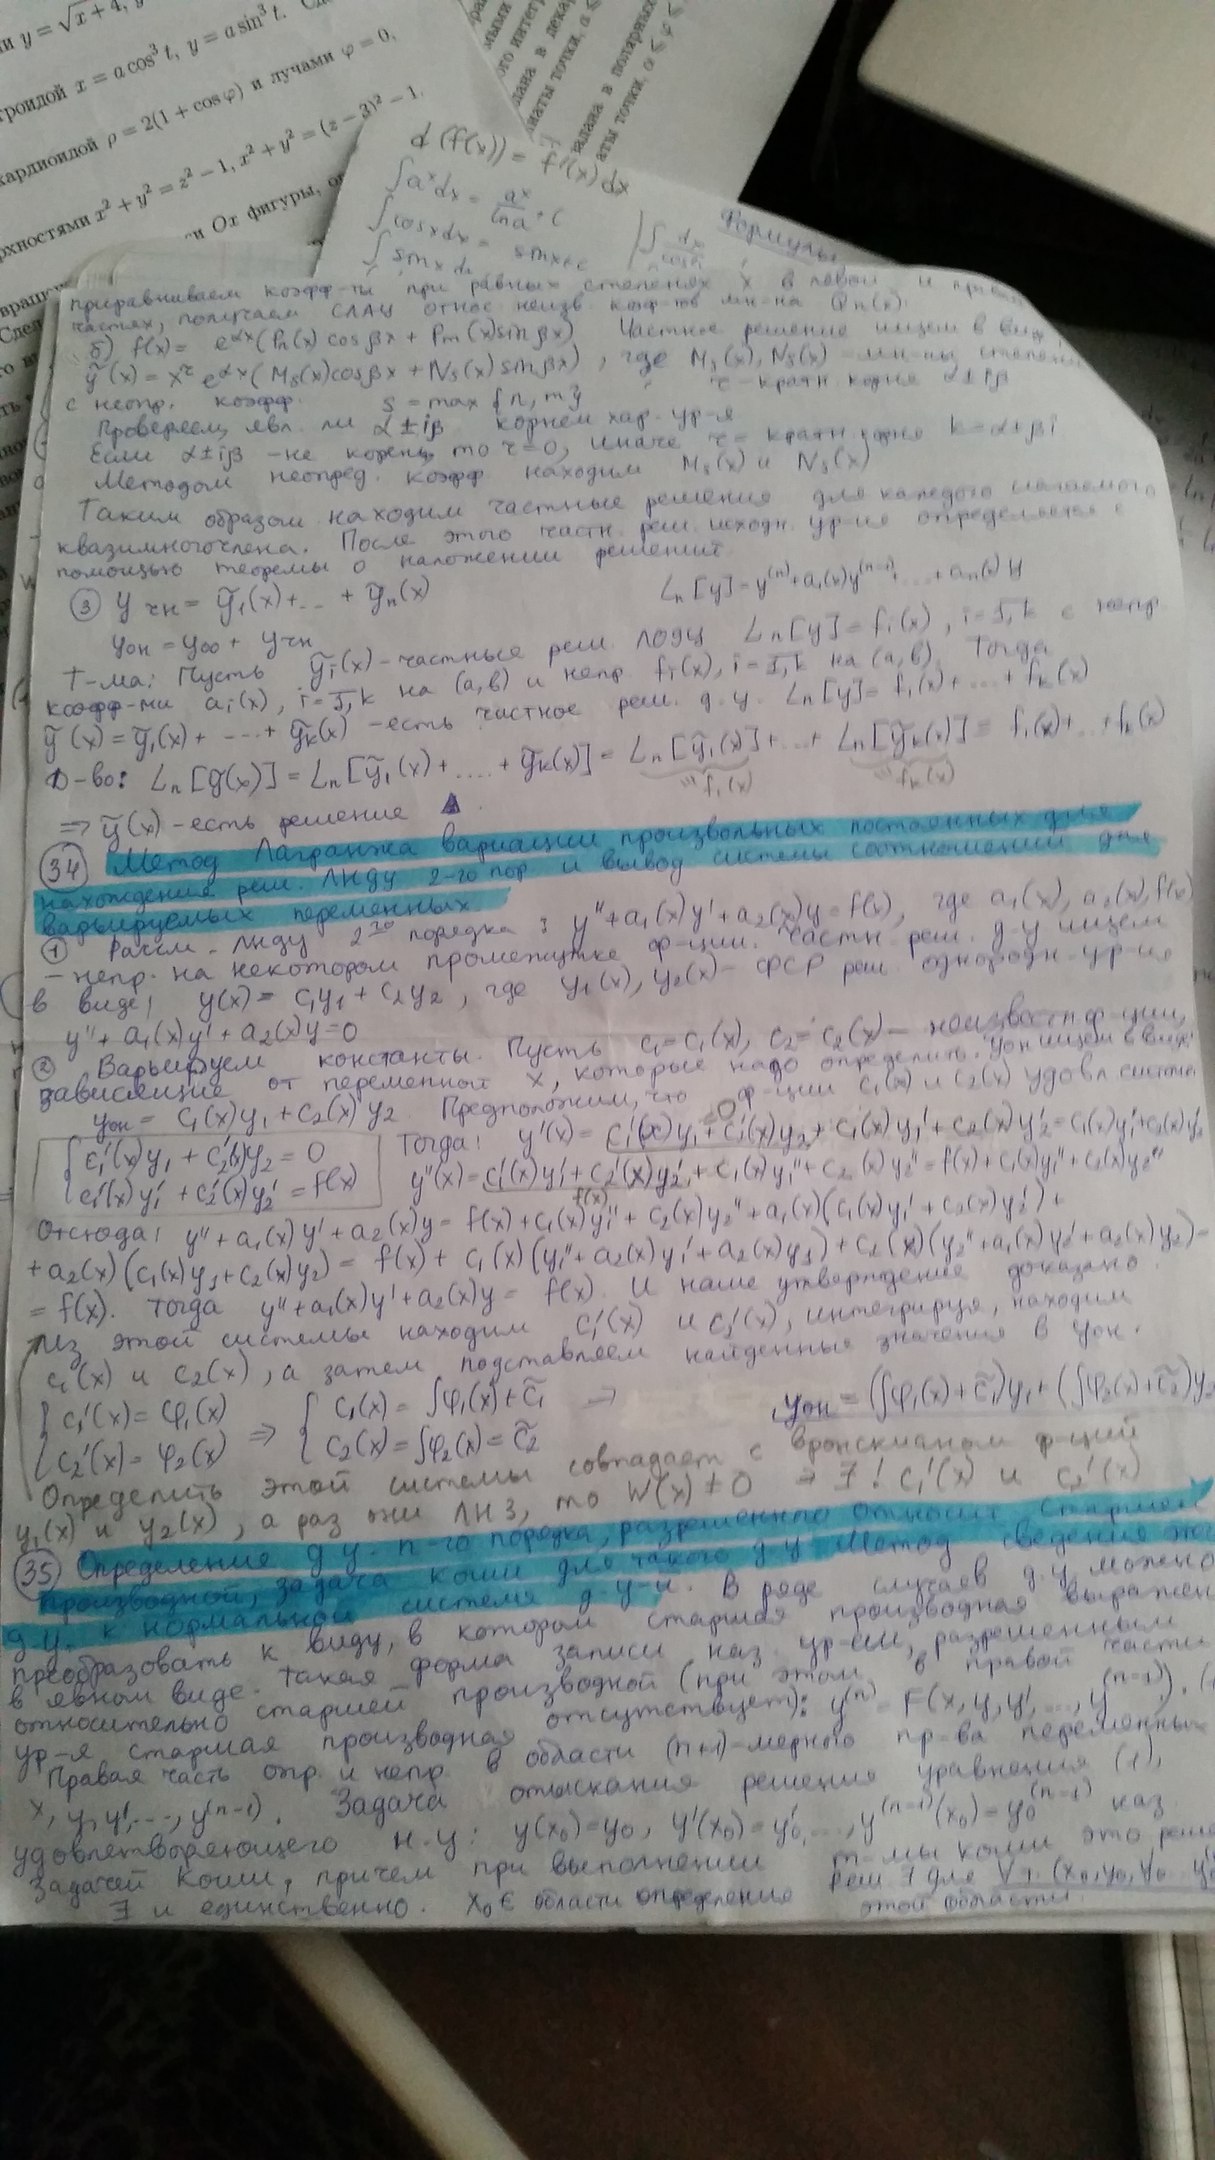 и y = √x+4, y
троидой x = a cos³ t, y = a sin³ t.
кардиоидой ρ = 2(1 + cos φ) и лучами φ = 0,
рхностями x² + y² = z² − 1, x² + y² = (z − 3)² − 1.
и Ox фигуры,
d(f(x)) = f'(x)dx
∫aˣdx = aˣ/ln a + C
∫cosxdx = sinx+c
∫sinx dx
Формулы
приравниваем коэфф-ты при равных степенях x в левой и правой
частях, получаем СЛАУ относ. неизв. коэф-тов мн-на Qn(x).
б) f(x) = e^αx(Pn(x) cos βx + Pm(x) sin βx) Частное решение ищем в виде
ỹ(x) = x^r e^αx(Ms(x)cosβx + Ns(x)sinβx), где Ms(x), Ns(x) – мн-ны степени
с неопр. коэфф. s = max{n, m} r – кратн. корня α±iβ
Проверяем, явл. ли α±iβ корнем хар. ур-я
Если α±iβ – не корень, то r=0, иначе r = кратн. корня k=α±βi
Методом неопред. коэфф находим Ms(x) и Ns(x)
Таким образом находим частные решения для каждого слагаемого
квазимногочлена. После этого частн. реш. исходн. ур-ия определяется с
помощью теоремы о наложении решений.
③ yчн = ỹ1(x)+...+ỹn(x) Ln[y]=y⁽ⁿ⁾+a1(x)y⁽ⁿ⁻¹⁾+...+an(x)y
yон = yоо + yчн
Т-ма: Пусть ỹi(x) – частные реш. ЛОДУ Ln[y]=fi(x), i=1,k с непр.
коэфф-ми ai(x), i=1,k на (a,b) и непр. fi(x), i=1,k на (a,b). Тогда
ỹ(x) = ỹ1(x)+...+ỹk(x) – есть частное реш. д.у. Ln[y] = f1(x)+...+fk(x)
Д-во: Ln[ỹ(x)] = Ln[ỹ1(x)+....+ỹk(x)] = Ln[ỹ1(x)]+...+Ln[ỹk(x)] = f1(x)+...+fk(x)
f1(x) fk(x)
⇒ ỹ(x) – есть решение ▲.
34 Метод Лагранжа вариации произвольных постоянных для
нахождения реш. ЛНДУ 2-го пор и вывод системы соотношений для
варьируемых переменных.
① Рассм. ЛНДУ 2го порядка: y''+a1(x)y'+a2(x)y=f(x), где a1(x), a2(x), f(x)
– непр. на некотором промежутке ф-ции. Частн. реш. д-у ищем
в виде: y(x) = c1y1 + c2y2, где y1(x), y2(x) – ФСР реш. однородн. ур-ия
y'' + a1(x)y' + a2(x)y=0
② Варьируем константы. Пусть c1=c1(x), c2=c2(x) – неизвестн. ф-ции,
зависящие от переменной x, которые надо определить. yон ищем в виде:
yон = c1(x)y1 + c2(x)y2. Предположим, что ф-ции c1(x) и c2(x) удовл. системе
{ c1'(x)y1 + c2'(x)y2 = 0 Тогда: y'(x) = c1'(x)y1+c2'(x)y2+c1(x)y1'+c2(x)y2'=c1(x)y1'+c2(x)y2'
=0
{ c1'(x)y1' + c2'(x)y2' = f(x) y''(x) = c1'(x)y1'+c2'(x)y2'+c1(x)y1''+c2(x)y2''=f(x)+c1(x)y1''+c2(x)y2''
f(x)
Отсюда: y''+a1(x)y'+a2(x)y = f(x)+c1(x)y1''+c2(x)y2''+a1(x)(c1(x)y1'+c2(x)y2')+
+a2(x)(c1(x)y1+c2(x)y2) = f(x)+c1(x)(y1''+a2(x)y1'+a2(x)y1)+c2(x)(y2''+a1(x)y2'+a2(x)y2)=
= f(x). Тогда y''+a1(x)y'+a2(x)y = f(x). И наше утверждение доказано.
Из этой системы находим c1'(x) и c2'(x), интегрируя, находим
c1(x) и c2(x), а затем подставляем найденные значения в yон.
{ c1'(x) = φ1(x) ⇒ { c1(x) = ∫φ1(x)+c̃1 ⇒ yон = (∫φ1(x)+c̃1)y1+(∫φ2(x)+c̃2)y2
{ c2'(x) = φ2(x) { c2(x) = ∫φ2(x)=c̃2
Определить этой системы совпадает с вронскианом ф-ций
y1(x) и y2(x), а раз они ЛНЗ, то W(x) ≠ 0 ⇒ ∃! c1'(x) и c2'(x)
35 Определение д.у. n-го порядка, разрешенного относит. старшей
производной, задача Коши для такого д.у. Метод сведения
д.у. к нормальной системе д.у-и. В ряде случаев д.у. можно
преобразовать к виду, в котором старшая производная выражен
в явном виде. Такая форма записи наз. ур-ем, разрешенным
относительно старшей производной (при этом в правой части
ур-я старшая производная отсутствует): y⁽ⁿ⁾ = F(x, y, y', ..., y⁽ⁿ⁻¹⁾). (1
Правая часть опр. и непр. в области (n+1)-мерного пр-ва переменных
x, y, y', ..., y⁽ⁿ⁻¹⁾. Задача отыскания решения уравнения (1),
удовлетворяющего н.у: y(x0)=y0, y'(x0)=y0', ..., y⁽ⁿ⁻¹⁾(x0)=y0⁽ⁿ⁻¹⁾ наз.
задачей Коши, причем при выполнении т-мы Коши это реше
∃ и единственно. x0 ∈ области определения реш ∃ для ∀ т. (x0, y0, y0'
этой области.